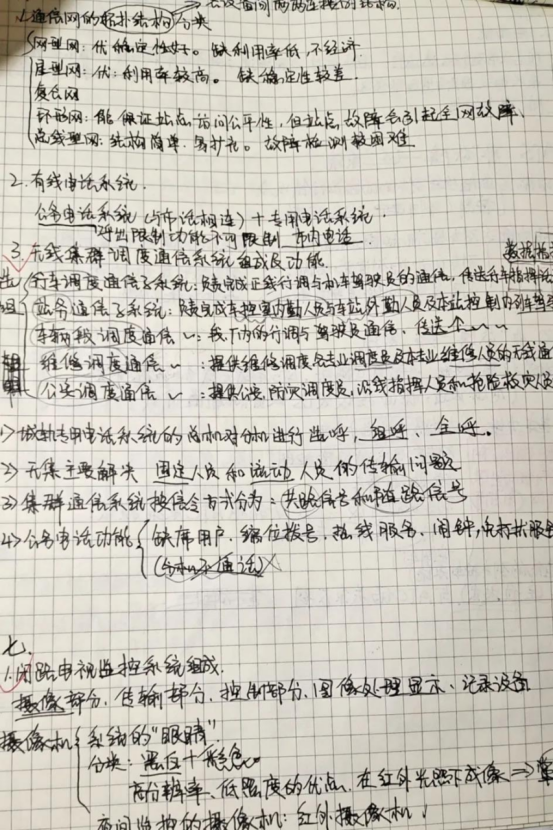 → 各设备间两两连接的结构
1. 通信网的拓扑结构分类
网型网：优 稳定性好。 缺 利用率低，不经济
星型网：优：利用率较高。 缺 稳定性较差
复合网
环形网：能保证站点访问公平性，但站点故障会引起全网故障、
总线型网：结构简单，易扩充。故障检测较困难
2. 有线电话系统.
公务电话系统（与市话相连）+专用电话系统.
呼出限制功能不可限制 市内电话
3. 无线集群调度通信系统组成及功能
行车调度通信子系统：负责完成正线行调与列车驾驶员的通信，传送行车指挥话
站务通信子系统：负责完成车控室内勤人员与车站外勤人员及本站控制内列车驾驶
车辆段调度通信 ～：我厂内的行调与驾驶员通信、传送
维修调度通信 ～：提供维修调度各专业调度员及本专业维修人员的无线通
公安调度通信 ～：提供公安，防灾调度员，沿线指挥人员和抢险救灾人员
1> 城轨专用电话系统的总机对分机进行选呼、组呼、全呼。
2> 无集主要解决 固定人员和流动人员的传输问题
3> 集群通信系统按信令方式分为：共路信号和随路信号
4> 公务电话功能 缺席用户、缩位拨号、热线服务、闹钟，免打扰服务
(分机不通话)×
七.
1. 闭路电视监控系统组成.
摄像部分、传输部分、控制部分、图像处理显示、记录设备
摄像机 系统的"眼睛"
分类：黑白+彩色。
高分辨率、低照度的优点、在红外光照下成像⇒
夜间监控的摄像机：红外摄像机！